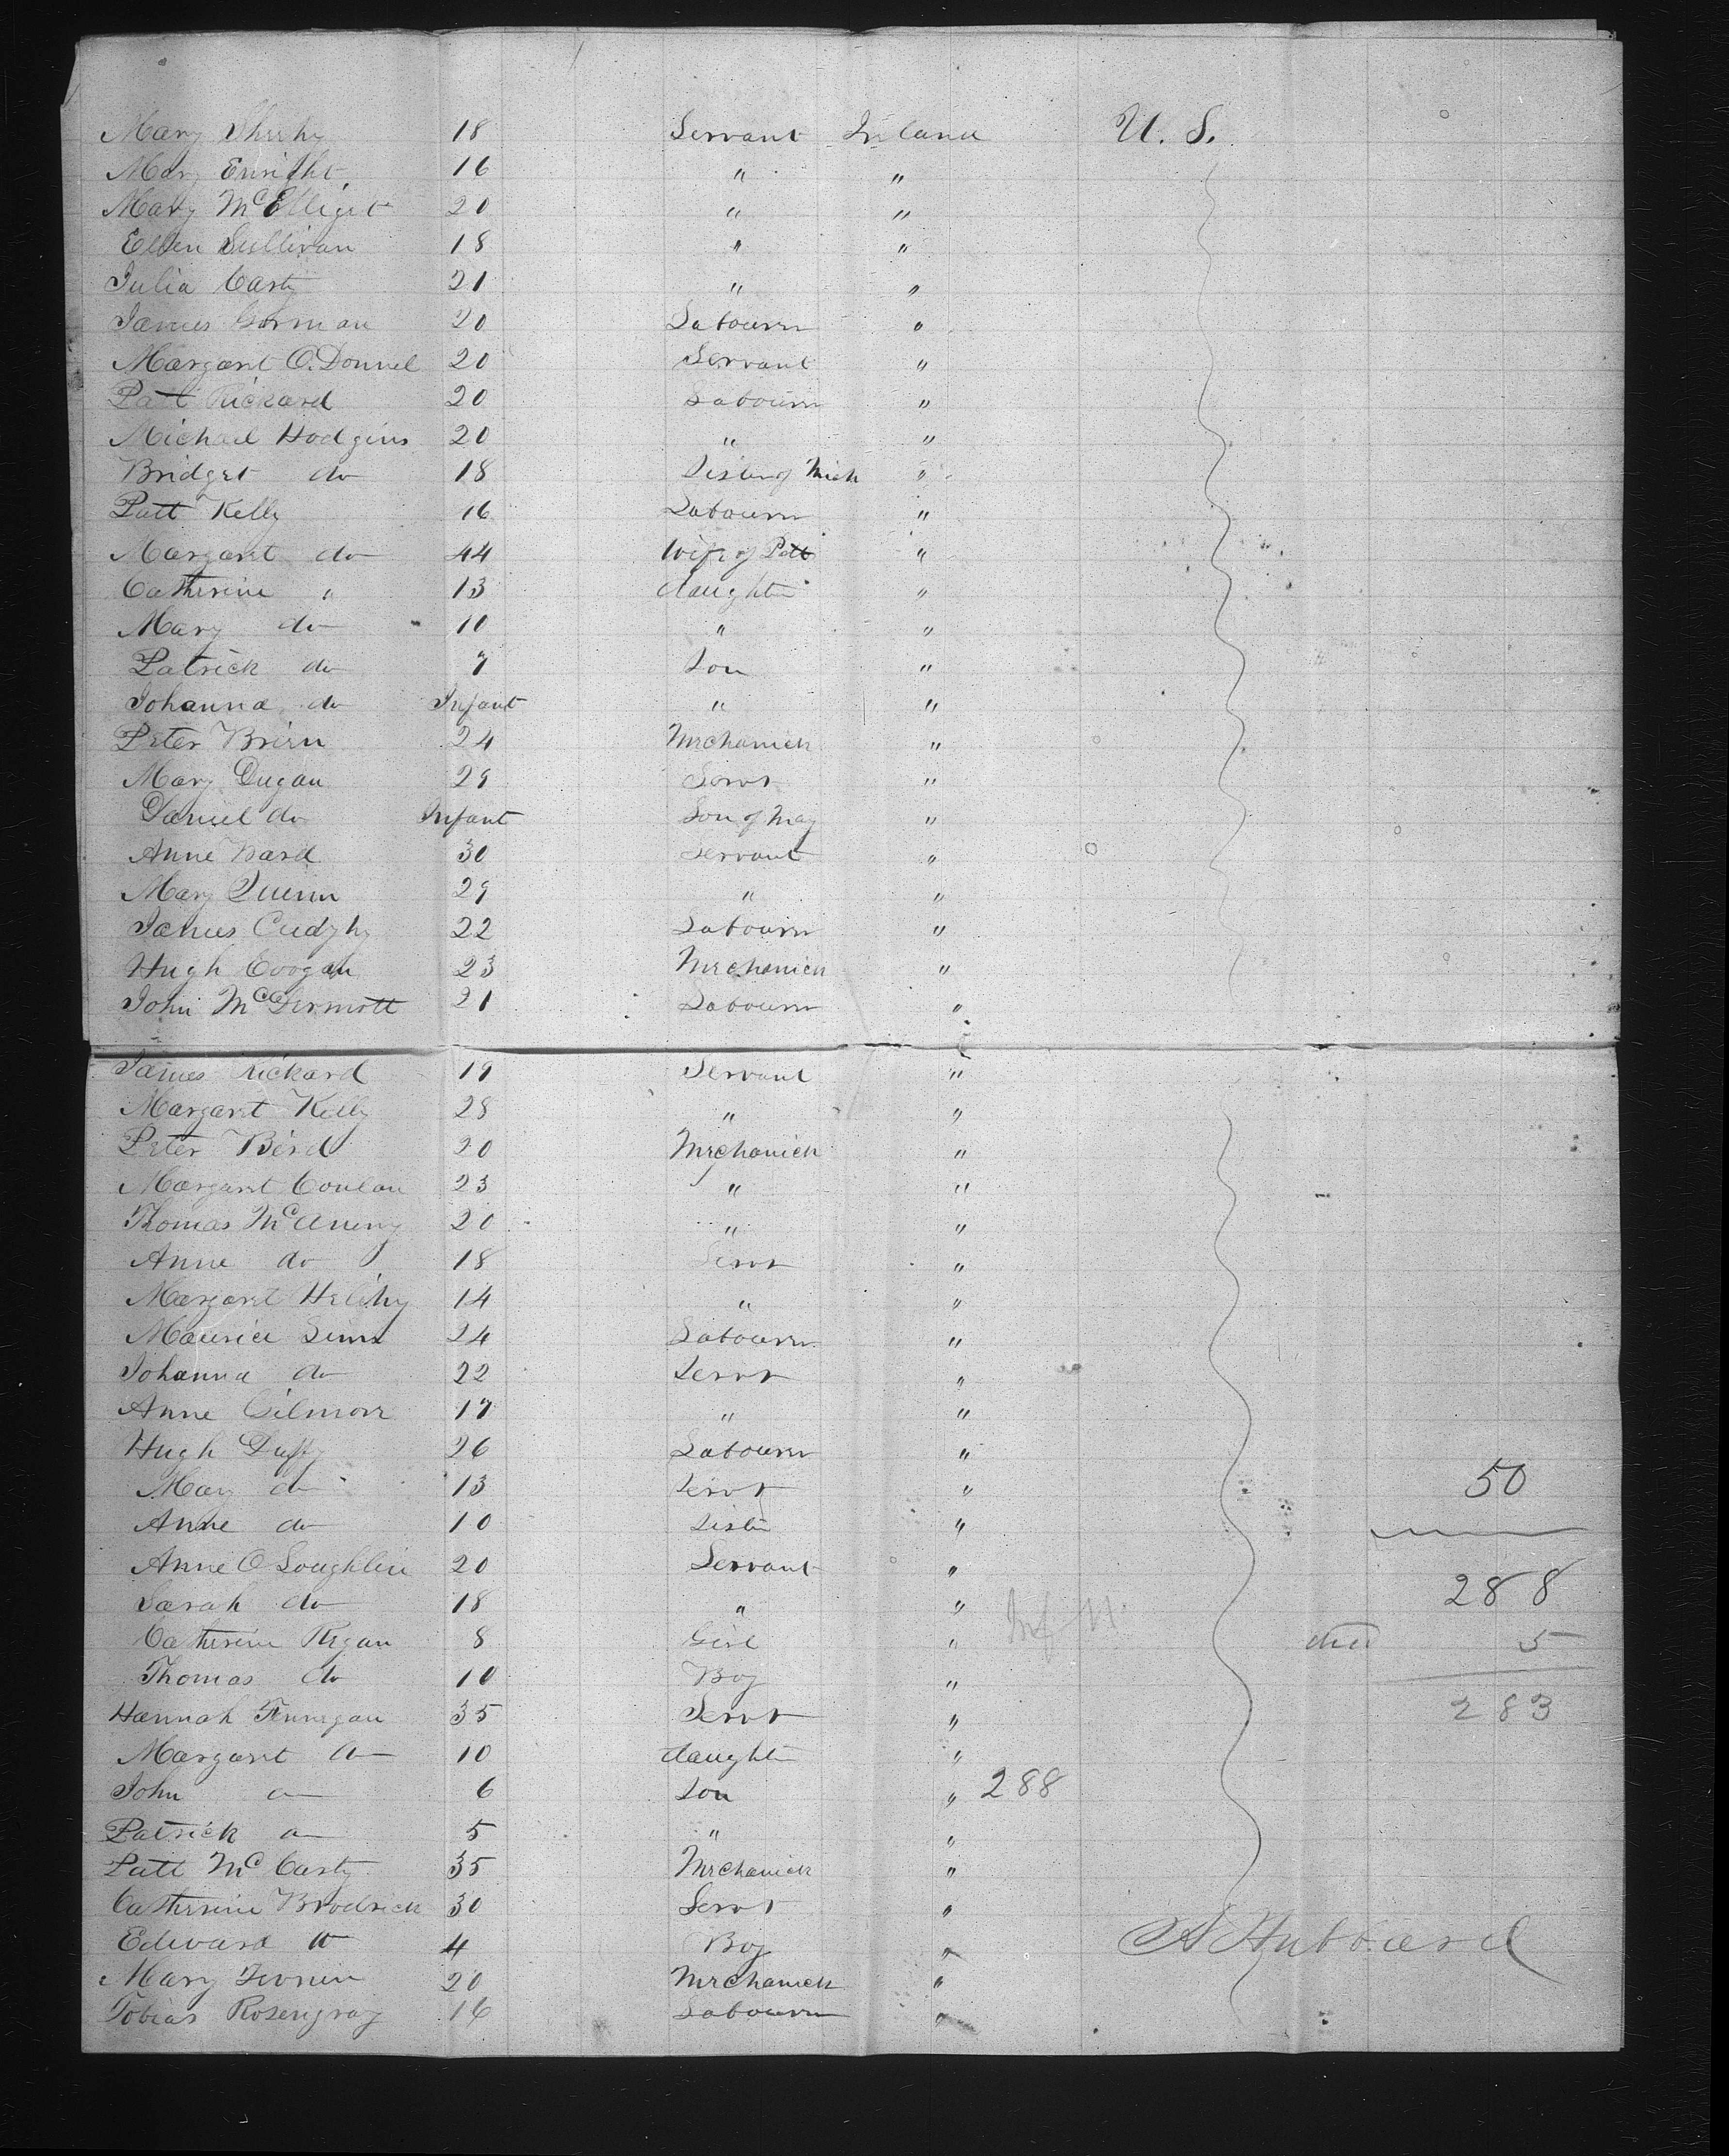 Mary Sheehy 18 Servant Ireland U. S.
Mary Enright 16 " "
Mary McElligit 20 " "
Ellen Sullivan 18 " "
Julia Carty 21 " "
James Gorman 20 Labourer "
Margaret O. Donnel 20 Servant "
Patt Rickard 20 Labourer "
Michael Hodgins 20 " "
Bridget do 18 Sister of Mich "
Patt Kelly 16 Labourer "
Margaret do 44 Wife of Patt "
Catherine " 13 daughter "
Mary do 10 " "
Patrick do 7 Son "
Johanna do Infant " "
Peter Brien 24 Mechanick "
Mary Dugan 29 Servt "
Daniel do Infant Son of May "
Anne Ward 30 Servant "
Mary Quinn 29 " "
James Cudyhy 22 Labourer "
Hugh Coogan 23 Mechanick "
John McDermott 21 Labourer "
James Rickard 19 Servant "
Margaret Kelly 28 " "
Peter Bird 20 Mechanick "
Margaret Conlan 23 " "
Thomas McAneny 20 " "
Anne do 18 Servt "
Margaret Helihy 14 " "
Maurice 24 Labourer "
Johanna do 22 Servt "
Anne Gilmore 17 " "
Hugh Duffy 26 Labourer "
Mary do 13 Servt " 50
Anne do 10 Sister "
Anne O Loughlin 20 Servant "
Sarah do 18 " " 288
Catherine Regan 8 Girl " Inf 11 died 5
Thomas do 10 Boy "
Hannah Finnegan 35 Servt " 283
Margaret do 10 daughter "
John do 6 Son " 288
Patrick do 5 " "
Patt McCarty 35 Mechanick "
Catherine Brodrick 30 Servt "
Edward do 4 Boy " A Hubbard
Mary 20 Mechanick "
Tobias Rosengray 16 Labourer "